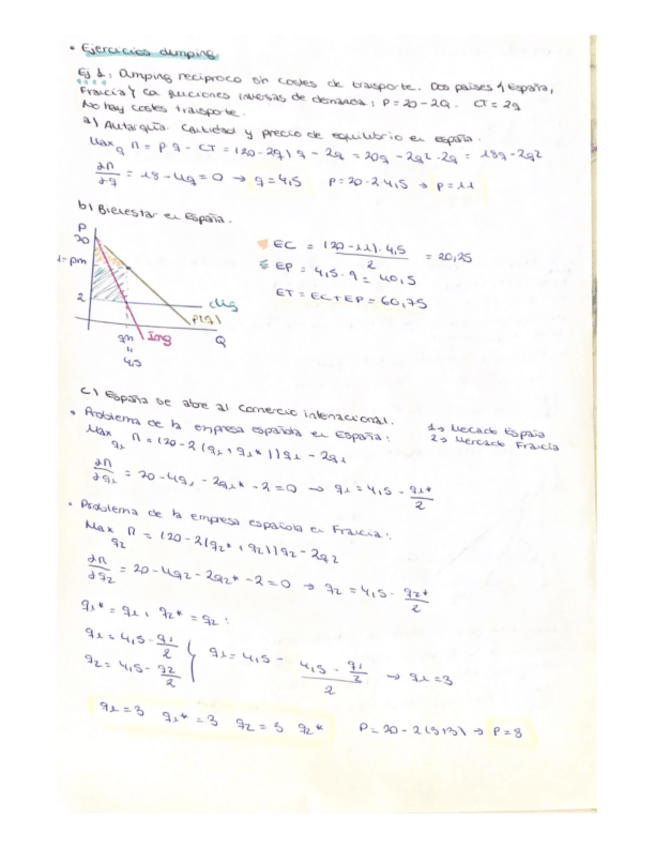 • Ejercicios dumping.
Ej 1: Dumping reciproco sin costes de transporte. Dos paises, España,
Francia y la funciones inversas de demanda: P = 20 - 2Q. CT = 2q
No hay costes transporte.
a) Autarquía. Cantidad y precio de equilibrio en españa.
Max q Π = P q - CT = (20 - 2q) q - 2q = 20q - 2q² - 2q = 18q - 2q²
∂Π/∂q = 18 - 4q = 0 → q = 4,5 P = 20 - 2·4,5 → P = 11
b) Bienestar en España.
P
20
11 = pm
2
CMg
P(q)
qm
"
4,5
Img
Q
EC = (20 - 11) · 4,5 / 2 = 20,25
EP = 4,5 · 9 = 40,5
ET = EC + EP = 60,75
c) España se abre al comercio internacional.
• Problema de la empresa española en España:
1 → Mercado España
2 → Mercado Francia
Max q1 Π = (20 - 2 (q1 + q1*)) q1 - 2q1
∂Π/∂q1 = 20 - 4q1 - 2q1* - 2 = 0 → q1 = 4,5 - q1*/2
• Problema de la empresa española en Francia:
Max q2 Π = (20 - 2(q2* + q2)) q2 - 2q2
∂Π/∂q2 = 20 - 4q2 - 2q2* - 2 = 0 → q2 = 4,5 - q2*/2
q1* = q1, q2* = q2:
q1 = 4,5 - q1/2
q2 = 4,5 - q2/2
q1 = 4,5 - (4,5 - q1/2)/2 → q1 = 3
q1 = 3 q1* = 3 q2 = 3 q2* P = 20 - 2(3+3) → P = 8